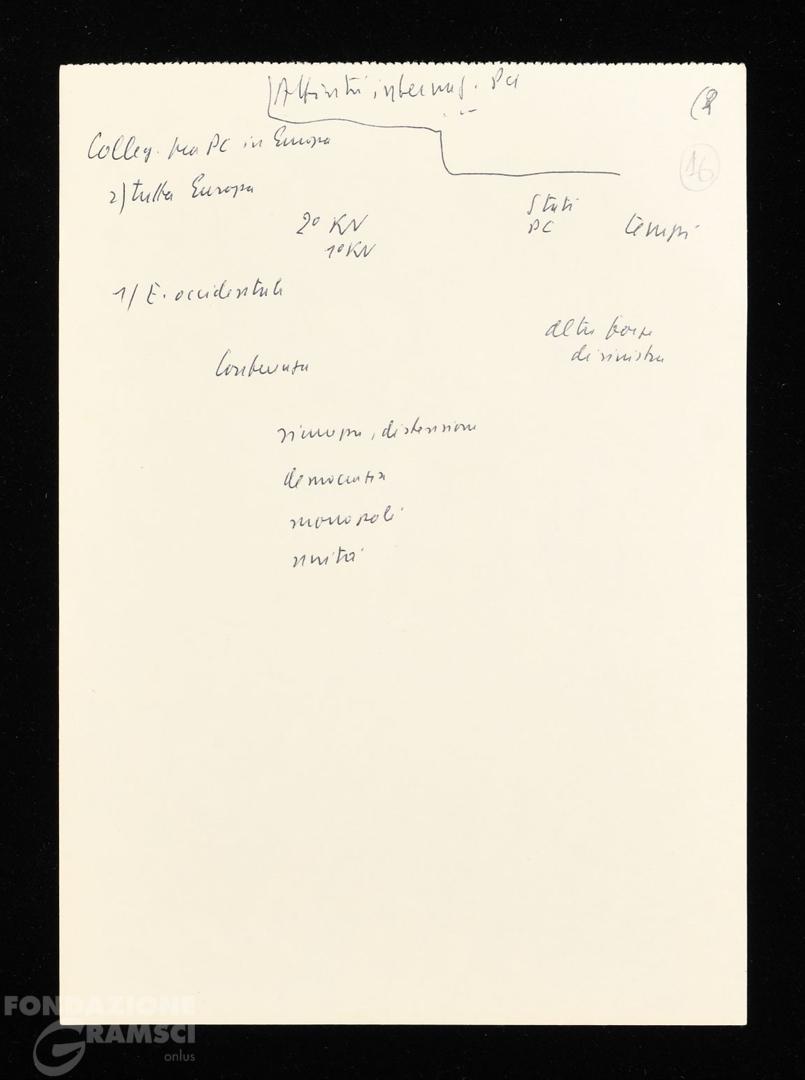 Attività internaz. PCI
(2
16
Colleg. fra PC in Europa
2) tutta Europa
Stati
2º KV
PC
tempi
1º KV
1/ E. occidentale
altre forze
di sinistra
Conferenza
sicurezza, distensione
democrazia
monopoli
unità
FONDAZIONE
GRAMSCI
onlus